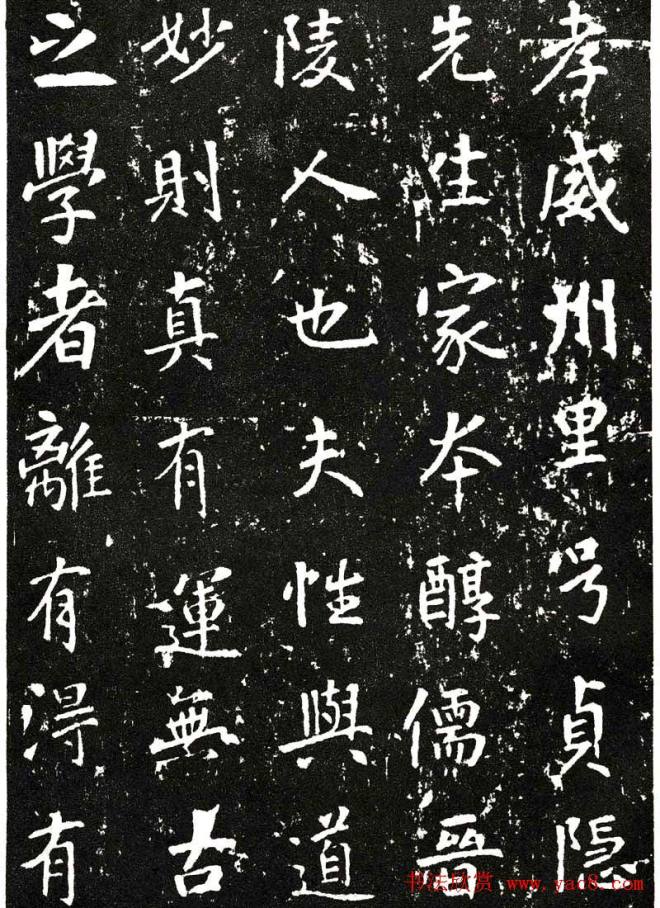 孝威州里号貞隐
先生家夲醇儒晉
陵人也夫性與道
妙則真有運無古
之學者離有得有
书法欣赏 www.yac8.com